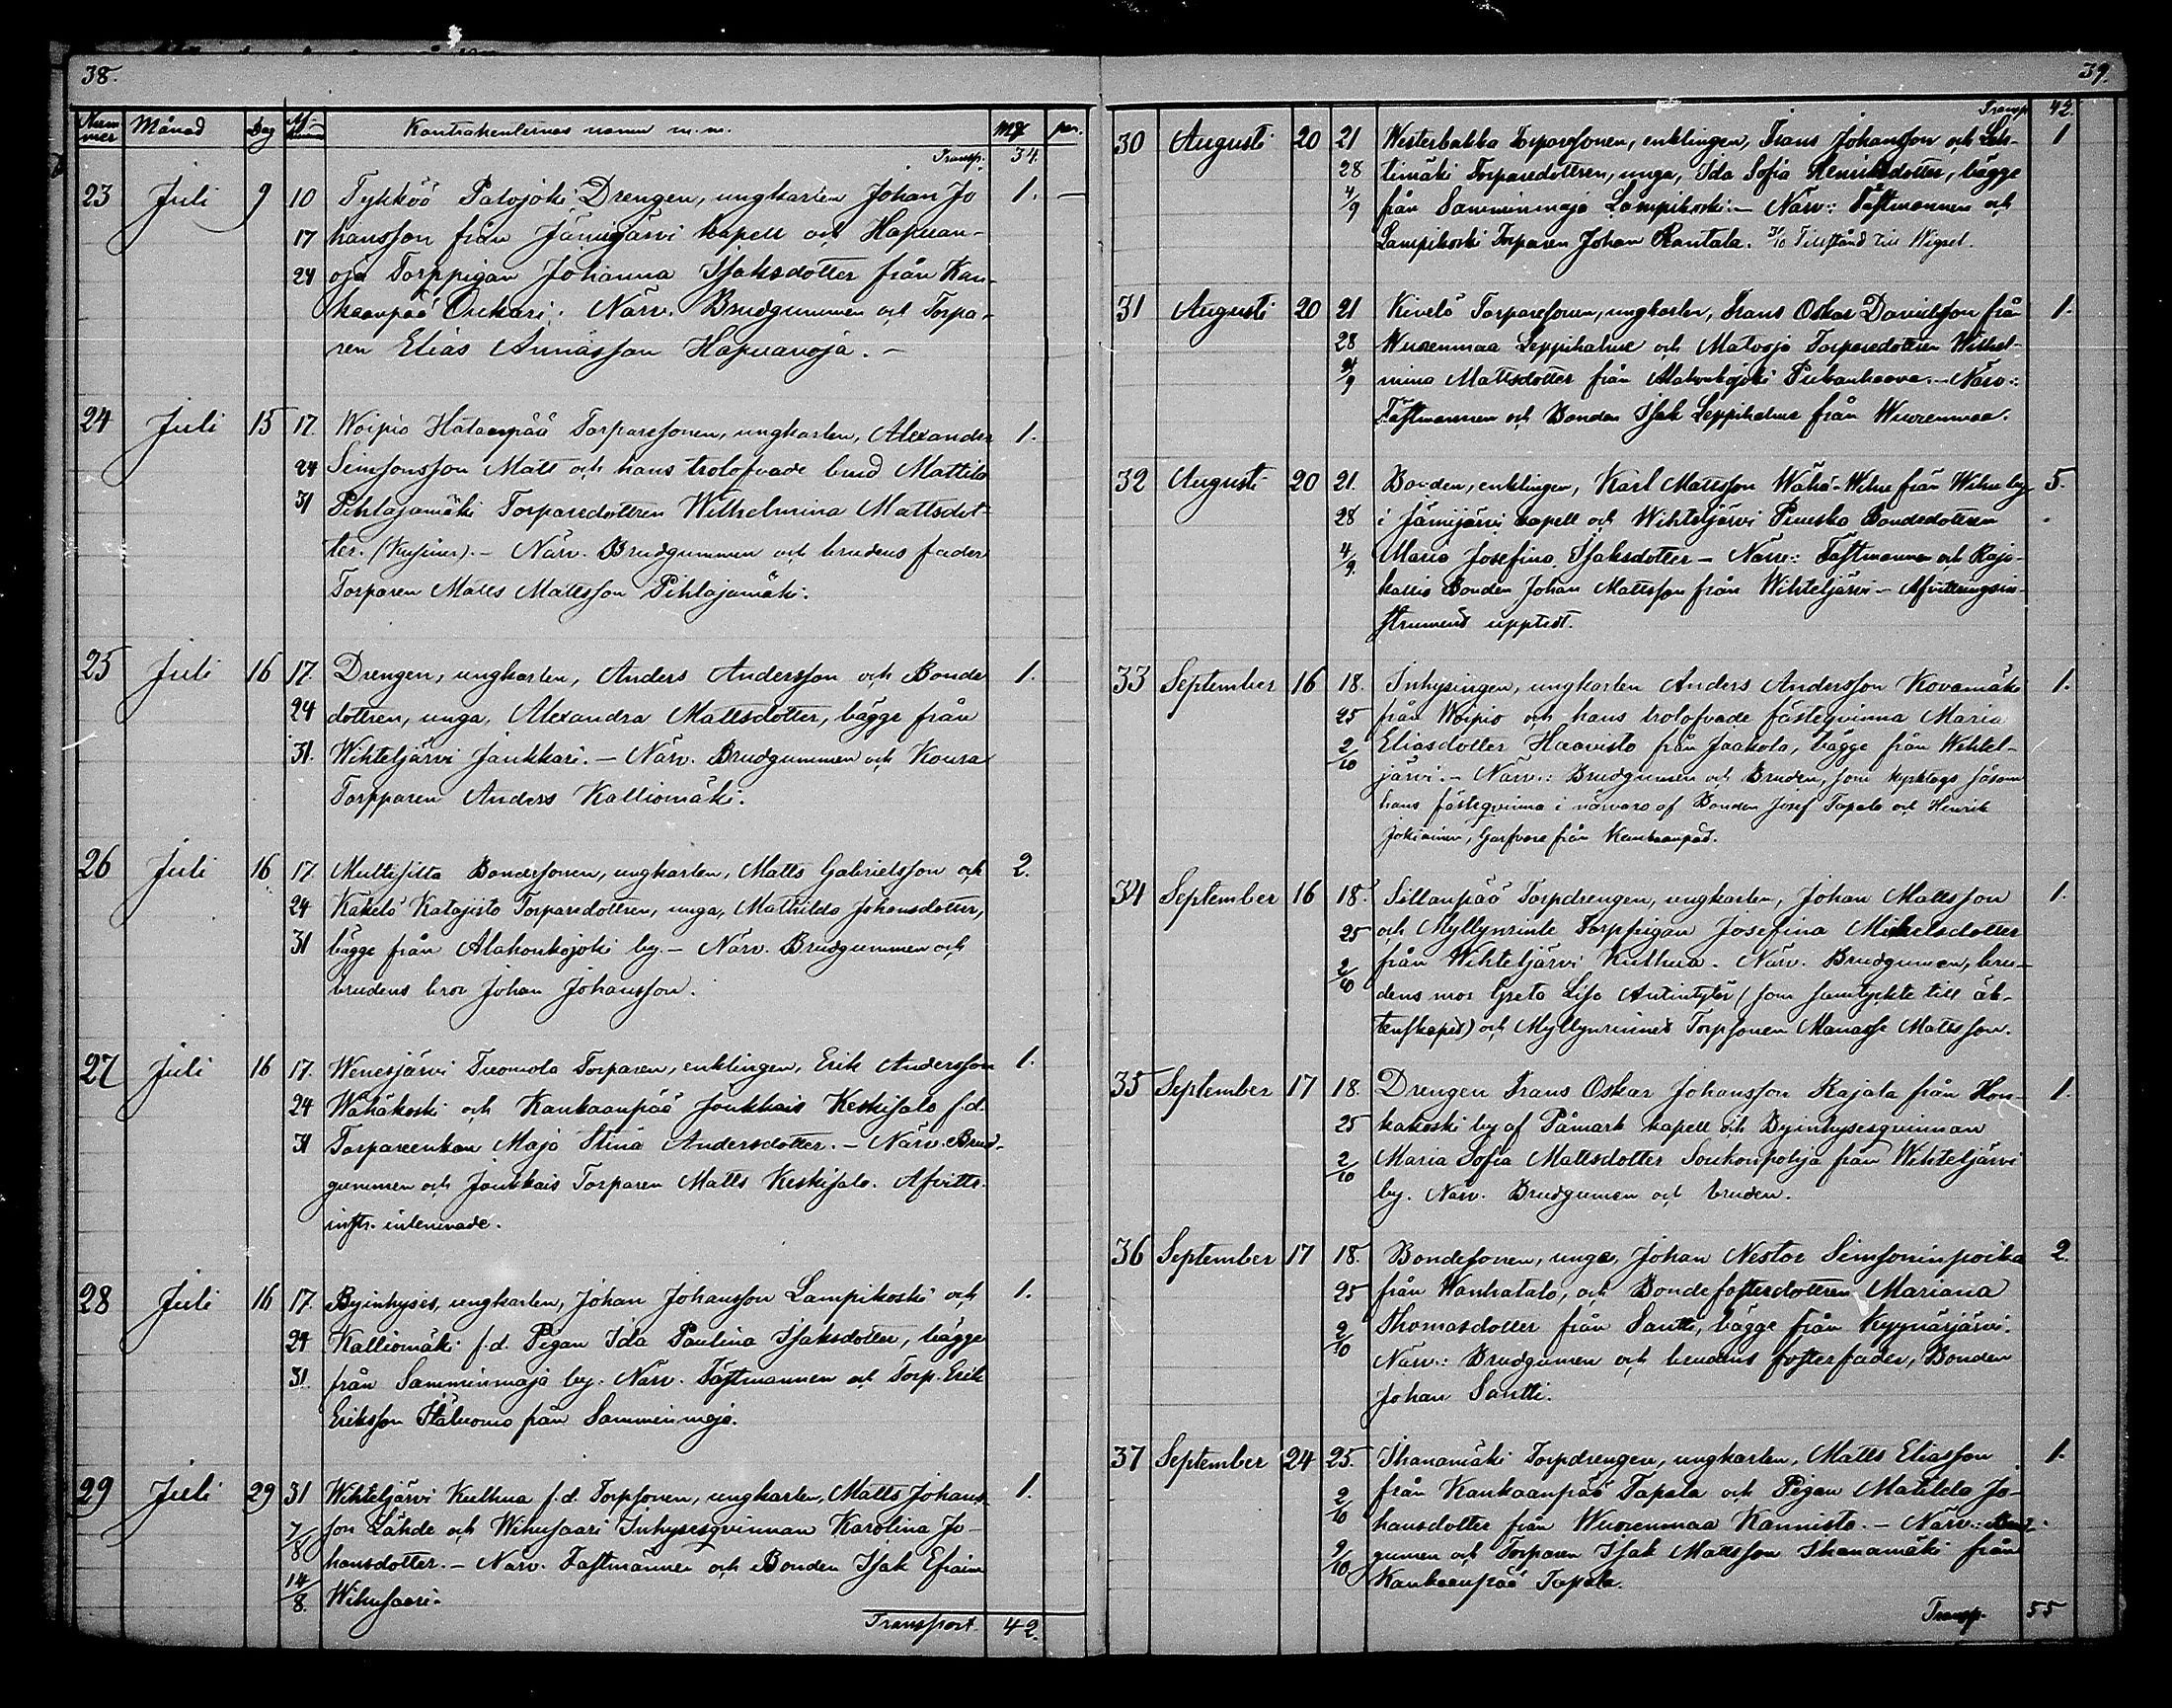 38.
Num-mer Månad Dag Kontrahenternas namn m.m. Mk pn.
Transp. 34.
23 Juli 9 10 Tykköö Patojoki Drengen, ungkarlen Johan Jo 1. —
17 hansson från Jämijärvi kapell och Hapuan-
24 oja Torppigan Johanna Isaksdotter från Kan-
kaanpää Narv. Brudgummen och Torpa-
ren Elias Hapuanoja. —
24 Juli 15 17. Woipio Hataanpää Torparesonen, ungkarlen, Alexander 1.
24 Simsonsson Matt och hans trolofvade brud Mattila
31 Pihlajamäki Torparedottren Wilhelmina Mattsdot-
ter. (Kusiner). — Närv. Brudgummen och brudens fader
Torparen Matts Mattsson Pihlajamäki.
25 Juli 16 17. Drengen, ungkarlen, Anders Andersson och Bonde 1.
24 dottren, unga, Alexandra Mattsdotter, bägge från
31. Wihteljärvi Jaukkari. — Närv. Brudgummen och Koura
Torpparen Anders Kalliomäki.
26 Juli 16 17. Multisilta Bondesonen, ungkarlen, Matts Gabrielsson och 2.
24 Kakelä Katajisto Torparedottren, unga, Mathilda Johansdotter,
31 bägge från Alahonkojoki by. — Närv. Brudgummen och
brudens bror Johan Johansson.
27 Juli 16 17. Wenesjärvi Tuomola Torparen, enklingen, Erik Andersson 1.
24 Wähäkoski och Kankaanpää Joukkais Keskisalo f.d.
31 Torpareenkan Maja Stina Andersdotter. — Närv. Brud-
gummen och Joukkais Torparen Matts Keskisalo. Afvittr.
instr. intenerade.
28 Juli 16 17. Byinhyses, ungkarlen, Johan Johansson Lampikoski och 1.
24 Kalliomäki f.d. Pigan Ida Paulina Isaksdotter, bägge
31. från Samminmaja by. Närv. Fästmannen och Torp. Erik
Eriksson från Samminmaja.
29 Juli 29 31 Wihteljärvi Kulhua f.d. Torpsonen, ungkarlen, Matts Johans- 1.
7/8 son Lähde och Wihusaari Inhysesqvinnan Karolina Jo-
hansdotter. — Närv. Fästmannen och Bonden Isak Efraim
14/8. Wihusaari.
Transport 42.
39.
Transp. 42.
30 Augusti 20 21 Westerbakka Torparesonen, enklingen, Frans Johansson och Leh- 1
28 timäki Torparedottren, unga, Ida Sofia Henriksdotter, bägge
4/9 från Samminmaja Lampikoski. — Närv: Fästmannen och
Lampikoski Torparen Johan Rantala. 31/10 Tillstånd till Wigsel.
31 Augusti 20 21 Kivelä Torparesonen, ungkarlen, Frans Oskar Davidsson från 1.
28 Wuorenmaa Leppihalme och Matooja Torparedottren Wilhel-
4/9 mina Mattsdotter från Alahonkojoki — Närv:
Fästmannen och Bonden Isak Leppihalme från Wuorenmaa.
32 Augusti 20 21. Bonden, enklingen, Karl Mattsson Wähä-Wihu från Wihu by 5.
28 i Jämijärvi kapell och Wihteljärvi Bondedottren
4/9. Maria Josefina Isaksdotter — Närv: Fästmannen och Raja-
kallio Bonden Johan Mattsson från Wihteljärvi — Afvittringsin-
strument upptedt.
33 September 16 18. Inhysingen, ungkarlen Anders Andersson Kovamäki 1.
25 från Woipio och hans trolofvade fästeqvinna Maria
2/10 Eliasdotter Haavisto från Jaakola, bägge från Wihtel-
järvi. — Närv.: Brudgumen och Bruden, som kyrktogs såsom
hans fästeqvinna i närvaro af Bonden Josef Tapala och Henrik
Jokiainen, Garfvare från Kankaanpää.
34 September 16 18. Sillanpää Torpdrengen, ungkarlen, Johan Mattsson 1.
25 och Myllyrinte Torppigan Josefina Mikelsdotter
2/10 från Wihteljärvi Kulhua. Närv. Brudgumen, bru-
dens mor Greta Lisa Antintytär (som samtyckte till äk-
tenskapet) och Myllynrinnes Torpsonen Manasse Mattsson.
35 September 17 18. Drengen Frans Oskar Johansson Rajala från Hon- 1.
25 kakoski by af Påmark kapell och Byinhysesqvinnan
2/10 Maria Sofia Mattsdotter Souhonpohja från Wihteljärvi
by. Närv. Brudgumen och bruden.
36 September 17 18. Bondesonen, unge, Johan Nestor Simsoninpoika 2.
25 från Wanhatalo, och Bondefosterdottren Mariana
2/10 Thomasdotter från Santti, bägge från Kyynärjärvi.
Närv.: Brudgumen och brudens fosterfader, Bonden
Johan Santti.
37 September 24 25. Ihanamäki Torpdrengen, ungkarlen, Matts Eliasson 1.
2/10 från Kankaanpää Tapala och Pigan Matilda Jo-
hansdotter från Wuorenmaa Kannisto. — Närv: Brud-
9/10 gumen och Torparen Isak Mattsson Ihanamäki från
Kankaanpää Tapala.
Transp. 55